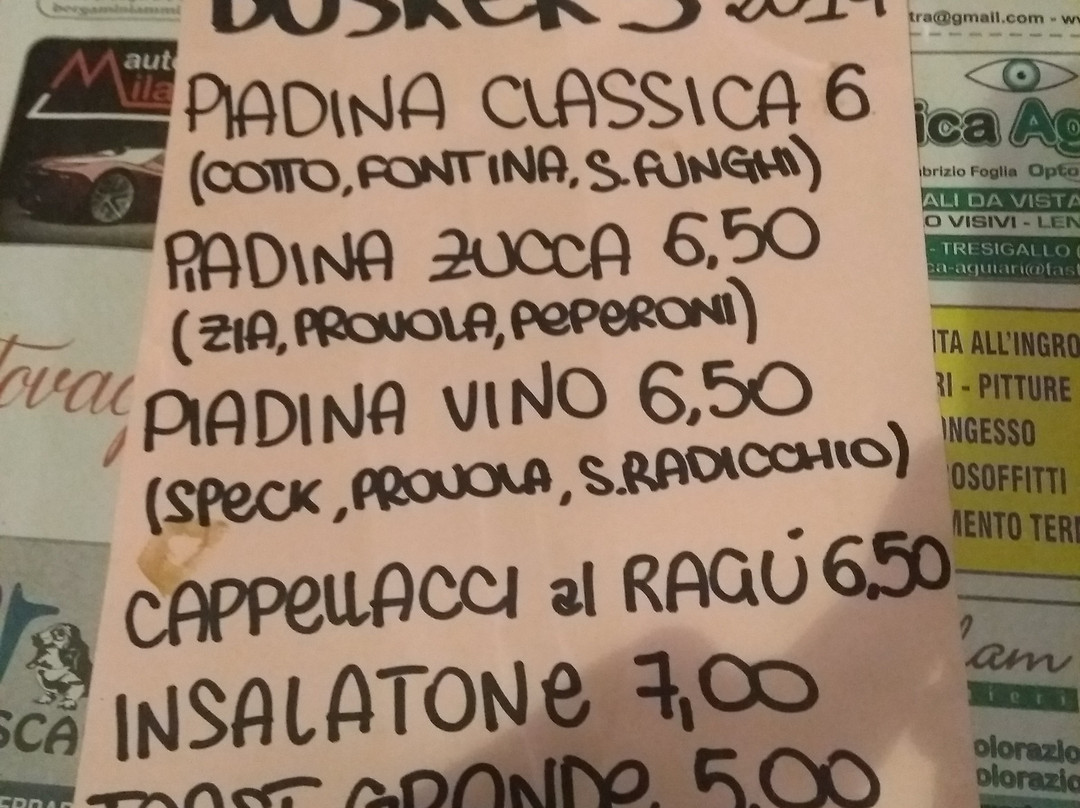 BUSKER'S 2019
PIADINA CLASSICA 6
(COTTO, FONTINA, S.FUNGHI)
PIADINA ZUCCA 6,50
(ZIA, PROVOLA, PEPERONI)
PIADINA VINO 6,50
(SPECK, PROVOLA, S.RADICCHIO)
CAPPELLACCI al RAGÚ 6,50
INSALATONE 7,00
TOAST GRANDE 5,00
auto
Mila
SCA
tra@gmail.com - w
ica Ag
brizio Foglia Opto
ALI DA VISTA
O VISIVI - LEN
- TRESIGALLO
ca-aguiari@fas
ITA ALL'INGRO
RI - PITTURE
NGESSO
OSOFFITTI
MENTO TER
lam
olorazio
olorazio